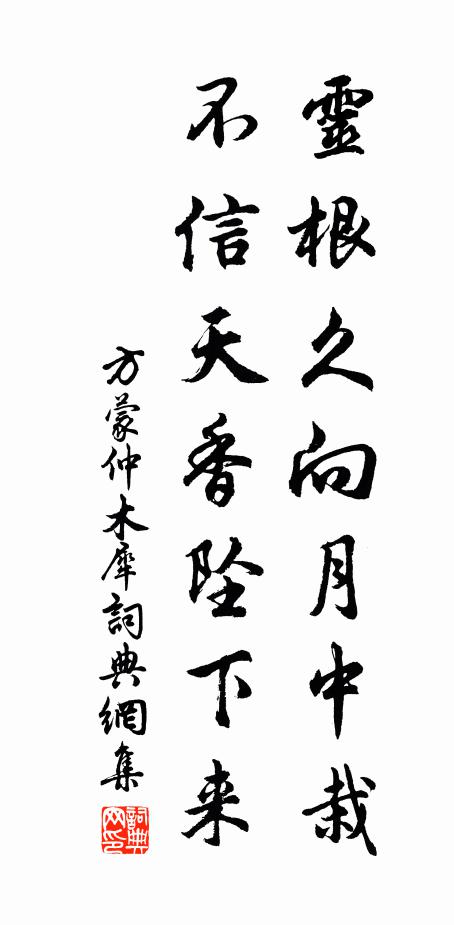 靈根久向月中栽
不信天香坠下来
方蒙仲木犀詞典網集
詞典網印